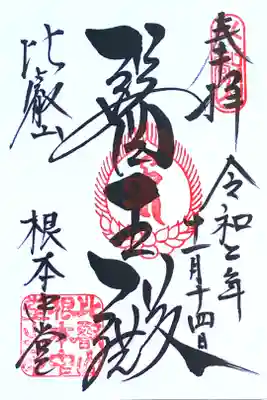 奉拝
令和元年
十一月十四日
醫王殿
比叡山
根本中堂